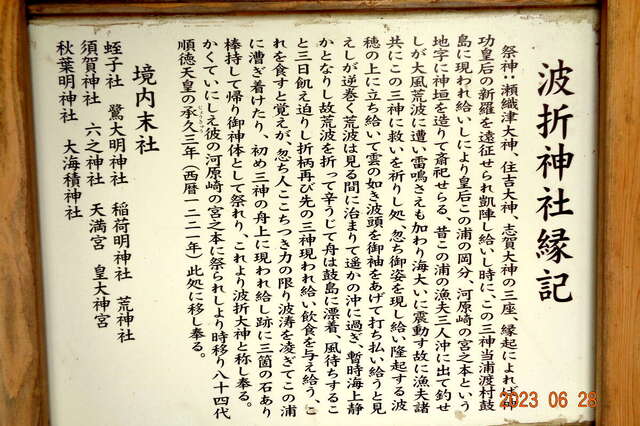 波折神社縁記
祭神：瀬織津大神、住吉大神、志賀大神の三座、縁起によれば神
功皇后の新羅を遠征せられ凱陣し給いし時に、この三神当浦渡村鼓
島に現われ給いしにより皇后この浦の岡分、河原崎の宮之本という
地字に神垣を造りて斎祀せらる、昔この浦の漁夫三人沖に出て釣せ
しが大風荒波に遭い雷鳴さえも加わり海大いに震動す故に漁夫諸
共にこの三神に救いを祈りし処、忽ち御姿を現し給い隆起する波
穂の上に立ち給いて雲の如き波頭を御袖をあげて打ち払い給うと見
えしが逆巻く荒波は見る間に治まりて遥かの沖に過ぎ、暫時海上静
かとなりし故荒波を折って辛うじて舟は鼓島に漂着、風待ちするこ
と三日飢え迫りし折柄再び先の三神現われ給い飲食を与え給う、こ
れを食すと覚えが、忽ち人ここちつき力の限り波涛を凌ぎてこの浦
に漕ぎ着けたり、初め三神の舟上に現われ給し跡に三箇の石あり
棒持して帰り御神体として祭れり、これより波折大神と称し奉る。
かくていにしえ彼の河原崎の宮之本に祭られしより時移り八十四代
順徳天皇の承久三年（西暦一二二一年）此処に移し奉る。
境内末社
蛭子社 鷺大明神社 稲荷明神社 荒神社
須賀神社 六之神社 天満宮 皇大神宮
秋葉明神社 大海積神社
2023 06 28